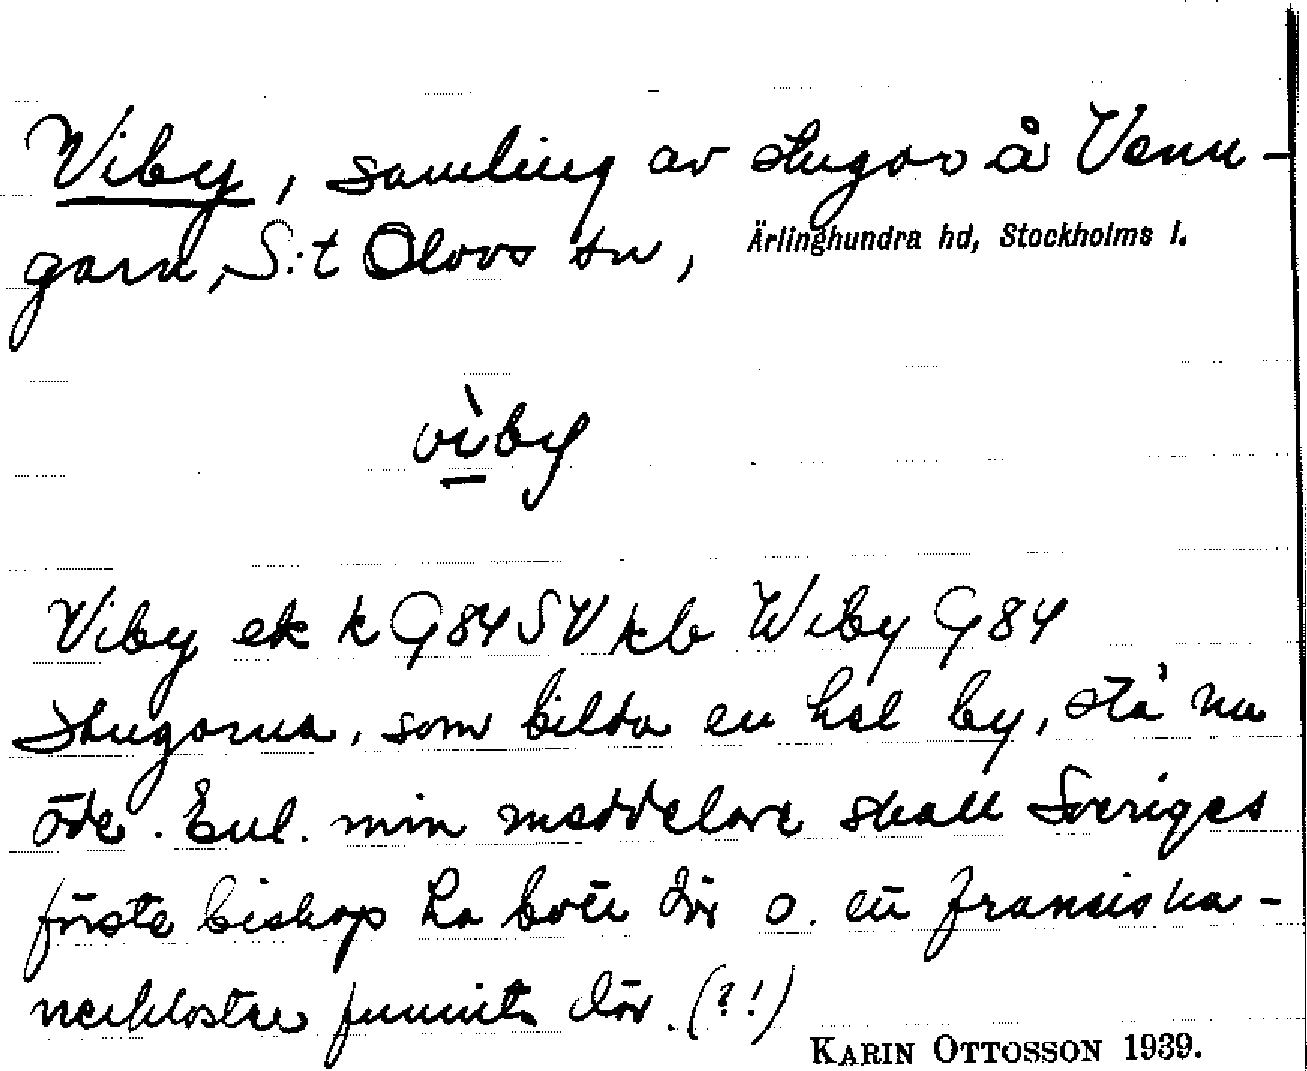 Viby, samling av stugor å Venn-
garn, S:t Olovs sn, Ärlinghundra hd, Stockholms l.
vìby
Viby ek k G84SV kb Wiby G84
Stugorna, som bilda en hel by, stå nu
öde. Enl. min meddelare skall Sveriges
förste biskop ha bott där o. ett fransiska-
nerkloster funnits där. (?!)
KARIN OTTOSSON 1939.